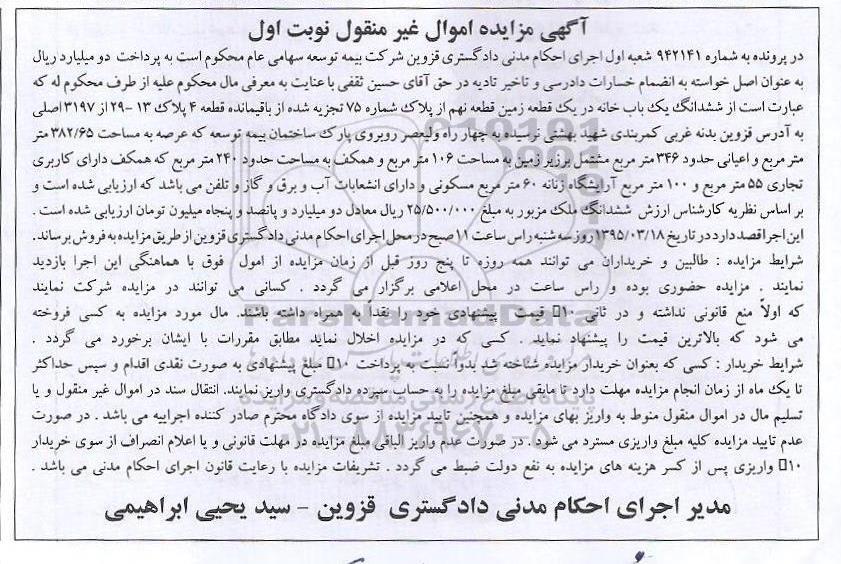 آگهی مزایده اموال غیر منقول نوبت اول
در پرونده به شماره ۹۴۲۱۴۱ شعبه اول اجرای احکام مدنی دادگستری قزوین شرکت بیمه توسعه سهامی عام محکوم است به پرداخت دو میلیارد ریال
به عنوان اصل خواسته به انضمام خسارات دادرسی و تاخیر تادیه در حق آقای حسین ثقفی با عنایت به معرفی مال محکوم علیه از طرف محکوم له که
عبارت است از ششدانگ یک باب خانه در یک قطعه زمین قطعه نهم از پلاک شماره ۷۵ تجزیه شده از باقیمانده قطعه ۴ پلاک ۱۳ -۲۹ از ۳۱۹۷ اصلی
به آدرس قزوین بدنه غربی کمربندی شهید بهشتی نرسیده به چهار راه ولیعصر روبروی پارک ساختمان بیمه توسعه که عرصه به مساحت ۳۸۲/۶۵ متر
متر مربع و اعیانی حدود ۳۴۶ متر مربع مشتمل بر زیر زمین به مساحت ۱۰۶ متر مربع و همکف به مساحت حدود ۲۴۰ متر مربع که همکف دارای کاربری
تجاری ۵۵ متر مربع و ۱۰۰ متر مربع آرایشگاه زنانه ۶۰ متر مربع مسکونی و دارای انشعابات آب و برق و گاز و تلفن می باشد که ارزیابی شده است و
بر اساس نظریه کارشناس ارزش ششدانگ ملک مزبور به مبلغ ۲۵/۵۰۰/۰۰۰ ریال معادل دو میلیارد و پانصد و پنجاه میلیون تومان ارزیابی شده است .
این اجرا قصد دارد در تاریخ ۱۳۹۵/۰۳/۱۸ روز سه شنبه راس ساعت ۱۱ صبح در محل اجرای احکام مدنی دادگستری قزوین از طریق مزایده به فروش برساند.
شرایط مزایده : طالبین و خریداران می توانند همه روزه تا پنج روز قبل از زمان مزایده از امول فوق با هماهنگی این اجرا بازدید
نمایند . مزایده حضوری بوده و راس ساعت در محل اعلامی برگزار می گردد . کسانی می توانند در مزایده شرکت نمایند
که اولاً منع قانونی نداشته و در ثانی ۱۰٪ قیمت پیشنهادی خود را نقداً به همراه داشته باشند. مال مورد مزایده به کسی فروخته
می شود که بالاترین قیمت را پیشنهاد نماید . کسی که در مزایده اخلال نماید مطابق مقررات با ایشان برخورد می گردد .
شرایط خریدار : کسی که بعنوان خریدار مزایده شناخته شد بدواً نسبت به پرداخت ۱۰٪ مبلغ پیشنهادی به صورت نقدی اقدام و سپس حداکثر
تا یک ماه از زمان انجام مزایده مهلت دارد تا مابقی مبلغ مزایده را به حساب سپرده دادگستری واریز نمایند. انتقال سند در اموال غیر منقول و یا
تسلیم مال در اموال منقول منوط به واریز بهای مزایده و همچنین تایید مزایده از سوی دادگاه محترم صادر کننده اجراییه می باشد . در صورت
عدم تایید مزایده کلیه مبلغ واریزی مسترد می شود . در صورت عدم واریز الباقی مبلغ مزایده در مهلت قانونی و یا اعلام انصراف از سوی خریدار
۱۰٪ واریزی پس از کسر هزینه های مزایده به نفع دولت ضبط می گردد . تشریفات مزایده با رعایت قانون اجرای احکام مدنی می باشد .
مدیر اجرای احکام مدنی دادگستری قزوین - سید یحیی ابراهیمی
ParsNamadData